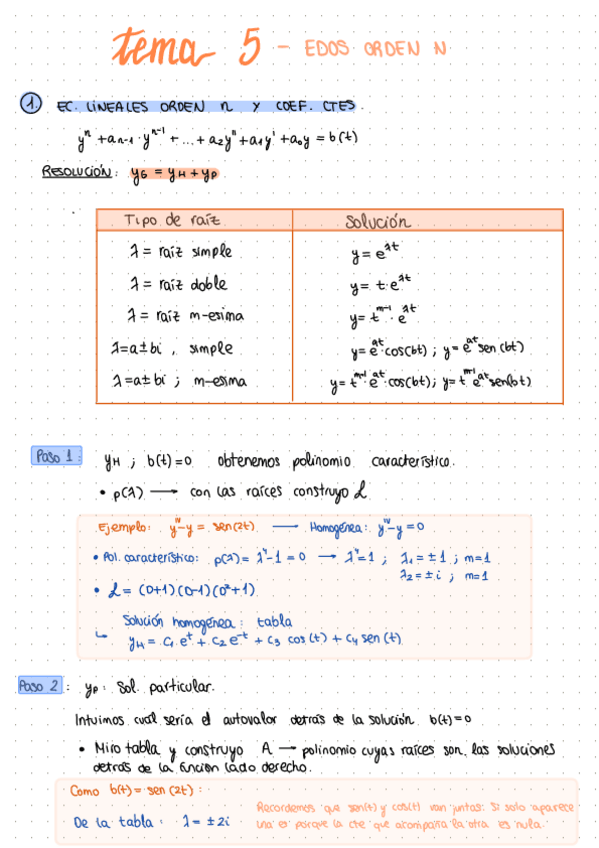 tema 5 - EDOS ORDEN N
1. EC. LINEALES ORDEN n Y COEF. CTES.
yⁿ + aₙ₋₁·yⁿ⁻¹ + ... + a₂y'' + a₁y' + a₀y = b(t)
RESOLUCIÓN: y_G = y_H + y_P
Tipo de raíz Solución
λ = raíz simple y = e^{λt}
λ = raíz doble y = t·e^{λt}
λ = raíz m-esima y = t^{m-1}·e^{λt}
λ = a±bi, simple y = e^{at}·cos(bt); y = e^{at}sen(bt)
λ = a±bi; m-esima y = t^{m-1}·e^{at}·cos(bt); y = t^{m-1}e^{at}sen(bt)
Paso 1: y_H; b(t)=0 obtenemos polinomio característico.
• p(λ) → con las raíces construyo L
Ejemplo: y^{IV}-y = sen(2t) → Homogénea: y^{IV}-y=0
• Pol. característico: p(λ) = λ⁴-1=0 → λ⁴=1; λ₁=±1; m=1
λ₂=±i; m=1
• L = (D+1)(D-1)(D²+1)
Solución homogénea: tabla
↳ y_H = C₁e^t + C₂e^{-t} + C₃ cos(t) + C₄ sen(t)
Paso 2: y_P: Sol. particular.
Intuimos cual sería el autovalor detrás de la solución b(t)=0
• Miro tabla y construyo A → polinomio cuyas raíces son las soluciones
detrás de la función lado derecho.
Como b(t) = sen(2t):
De la tabla: λ = ±2i
Recordemos que sen(t) y cos(t) van juntas. Si solo aparece
una es porque la cte que acompaña la otra es nula.